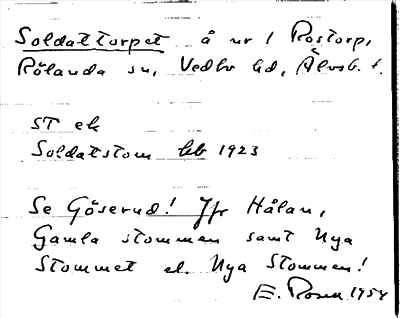 Soldattorpet å nr 1 Rostorp,
Rölanda sn, Vedbo hd, Älvsb. l.
ST ek
Soldatstom Gbb 1923
Se Göserud! Jfr Hålan,
Gamla stommen samt Nya
Stommet el. Nya Stommen!
E. Rosen 1954